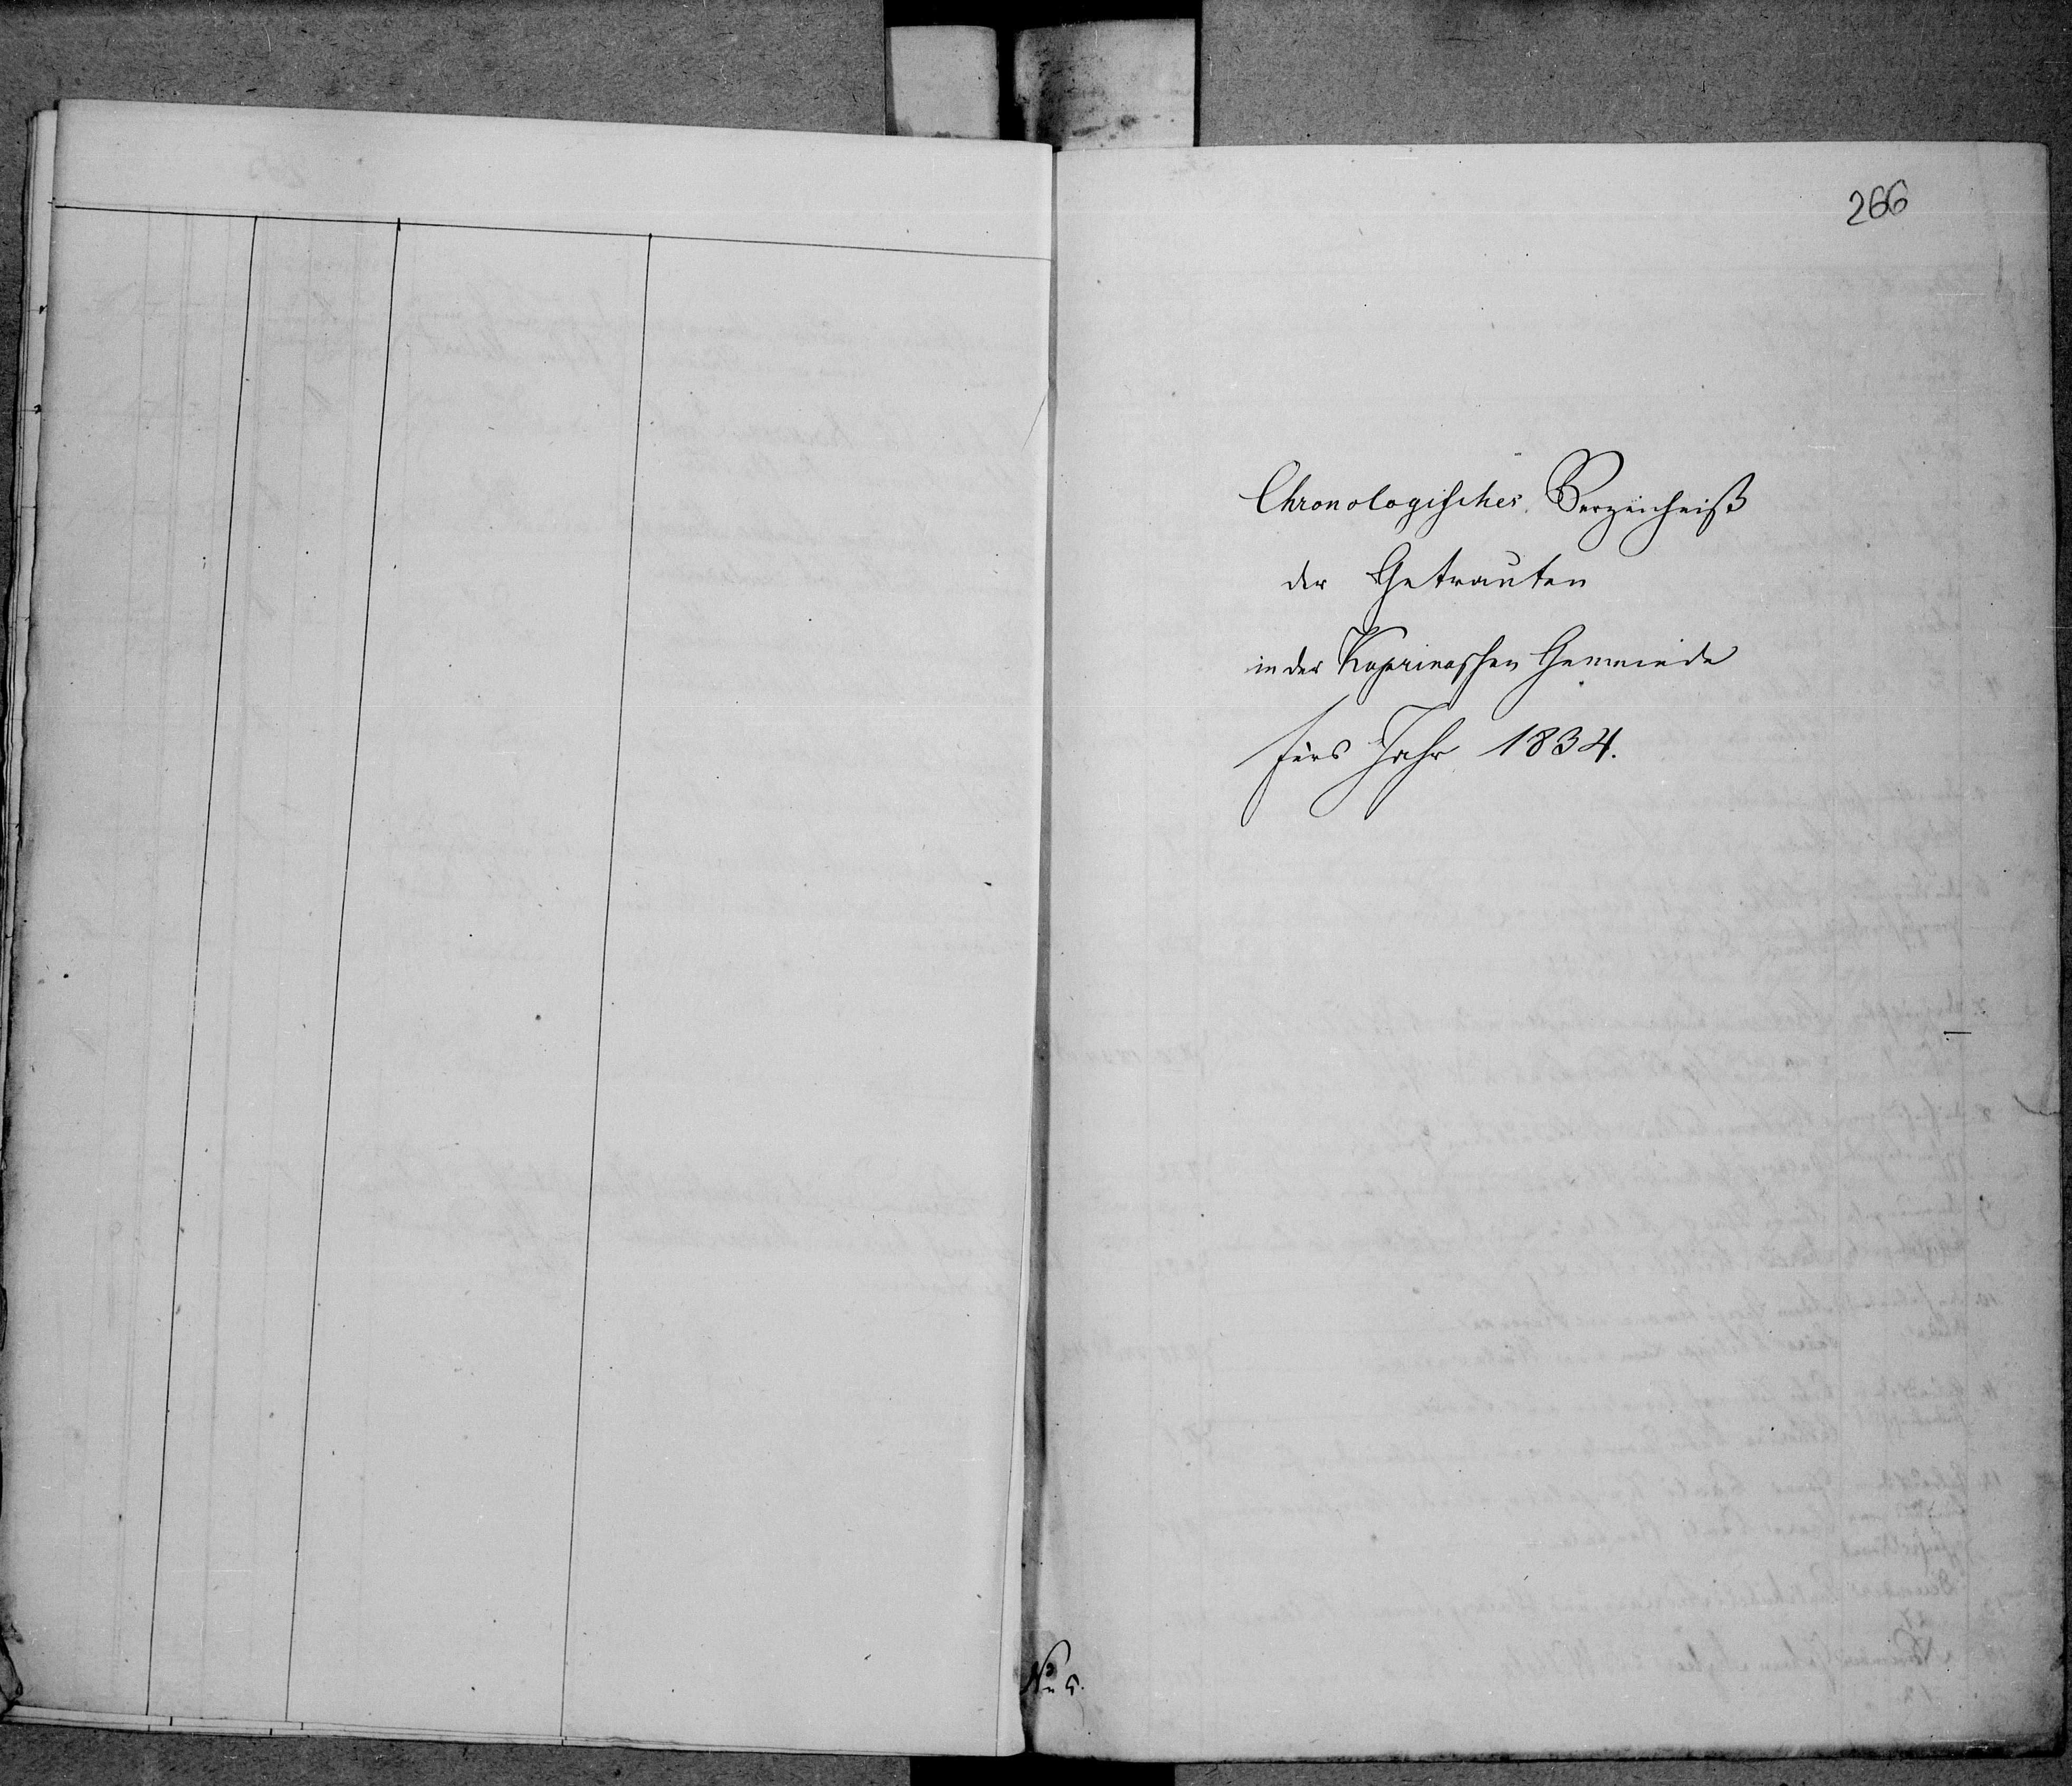 266
Chronologisches Verzeichniß
der Getrauten
in der Koprinaschen Gemeinde
fürs Jahr 1834.
No 5.